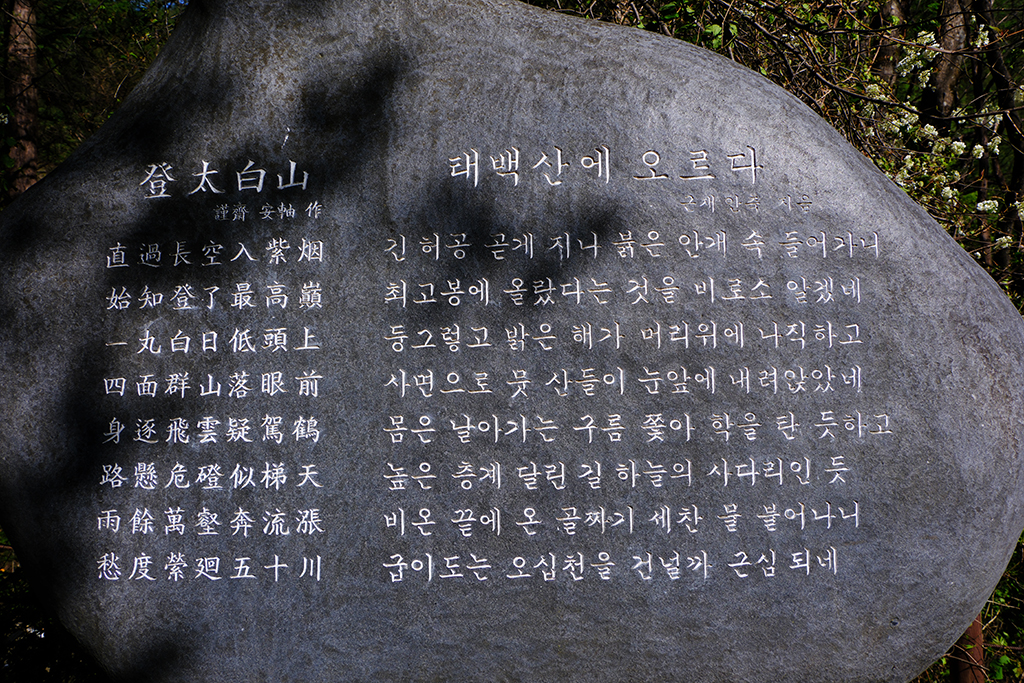 登太白山
謹齊 安軸 作
直過長空入紫烟
始知登了最高巓
一丸白日低頭上
四面群山落眼前
身逐飛雲疑駕鶴
路懸危磴似梯天
雨餘萬壑奔流漲
愁度縈廻五十川
태백산에 오르다
근재 안축 지음
긴 허공 곧게 지나 붉은 안개 속 들어가니
최고봉에 올랐다는 것을 비로소 알겠네
둥그렇고 밝은 해가 머리위에 나직하고
사면으로 뭇 산들이 눈앞에 내려앉았네
몸은 날아가는 구름 쫓아 학을 탄 듯하고
높은 층계 달린 길 하늘의 사다리인 듯
비온 끝에 온 골짜기 세찬 물 불어나니
굽이도는 오십천을 건널까 근심 되네